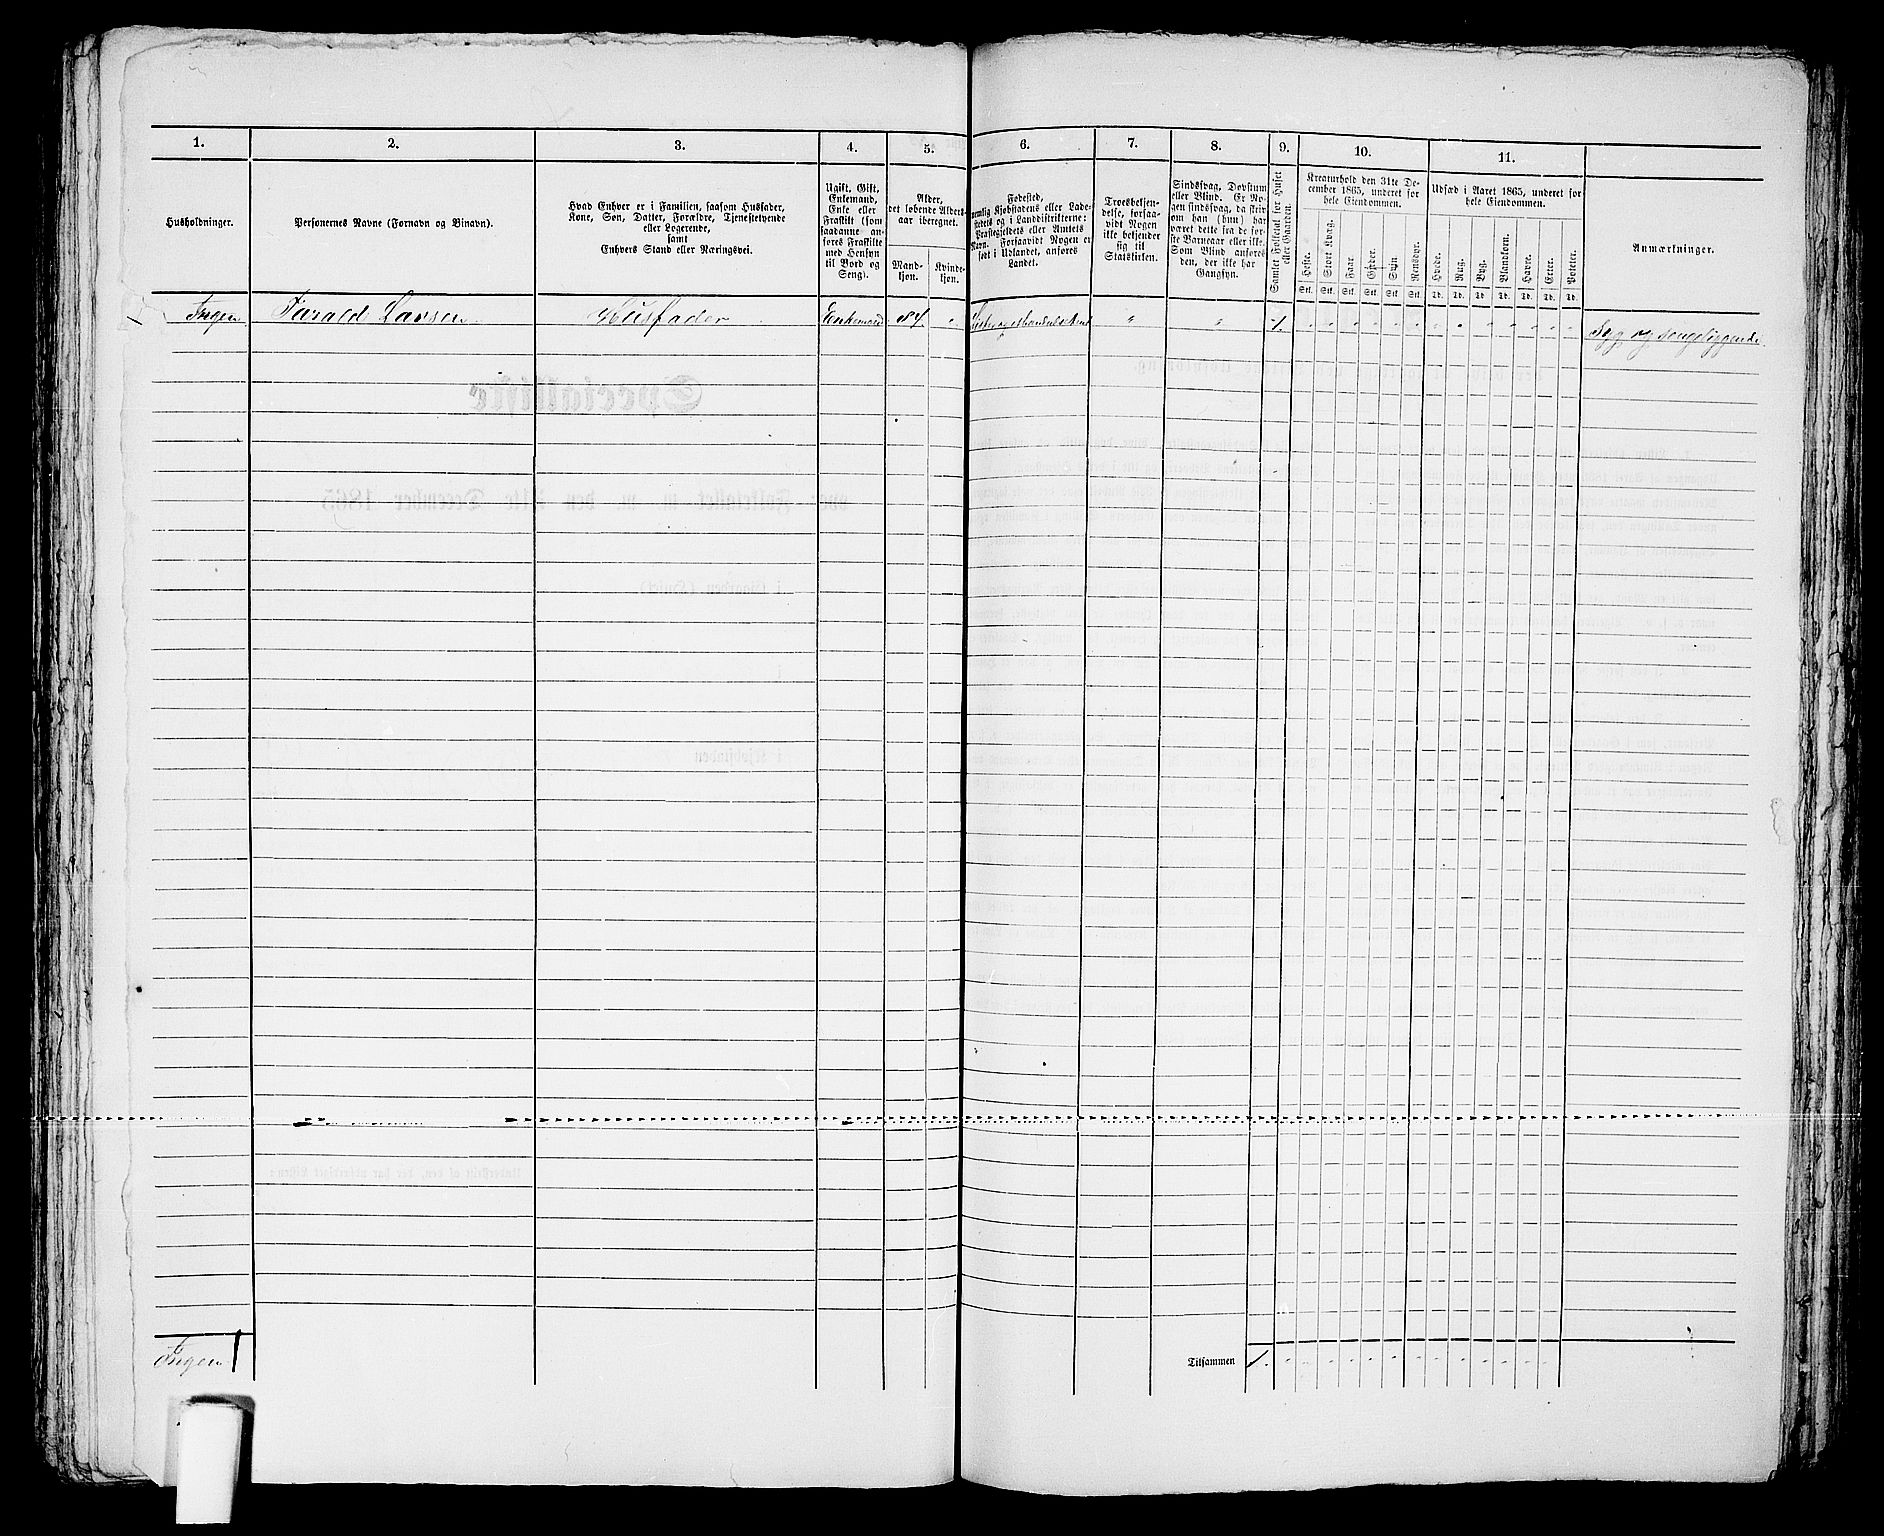 1.
2.
3.
4.
5.
6.
7.
8.
9.
10.
11.
Husholdninger.
Personernes Navne (Fornavn og Binavn).
Hvad Enhver er i Familien, saasom Husfader,
Kone, Søn, Datter, Forældre, Tjenestetyende
eller Logerende,
samt
Enhvers Stand eller Næringsvei.
Ugift, Gift,
Enkemand,
Enke eller
Fraskilt (som
saadanne an-
føres Fraskilte
med Hensyn
til Bord og
Seng).
Alder,
det løbende Alders-
aar iberegnet.
Mand-
kjøn.
Kvinde-
kjøn.
Fødested,
nemlig Kjøbstadens eller Lade-
stedets og i Landdistrikterne:
Præstegjeldets eller Amtets
Navn. Forsaavidt Nogen er
født i Udlandet, anføres
Landet.
Troesbekjen-
delse, forsaa-
vidt Nogen
ikke bekjender
sig til
Statskirken.
Sindssvag, Døvstum
eller Blind. Er No-
gen sindssvag, da skriv
om han (hun) har
været dette fra de før-
ste Barneaar eller ikke.
Som Blind anføres
den, der ikke har
Gangsyn.
Samlet Folketal for Huset
eller Gaarden.
Kreaturhold den 31te De-
cember 1865, underet for
hele Eiendommen.
Heste.
Stort Kvæg.
Faar.
Gjeder.
Svin.
Rensdyr.
Stk. Stk. Stk. Stk. Stk. Stk.
Udsæd i Aaret 1865, underet for
hele Eiendommen.
Hvede.
Rug.
Byg.
Blandkorn.
Havre.
Erter.
Poteter.
Td. Td. Td. Td. Td. Td. Td.
Anmærkninger.
Ingen Larsen Husfader Enkemand 84. " " " 1. Syg og sengeliggende.
Ingen 1
Tilsammen 1.